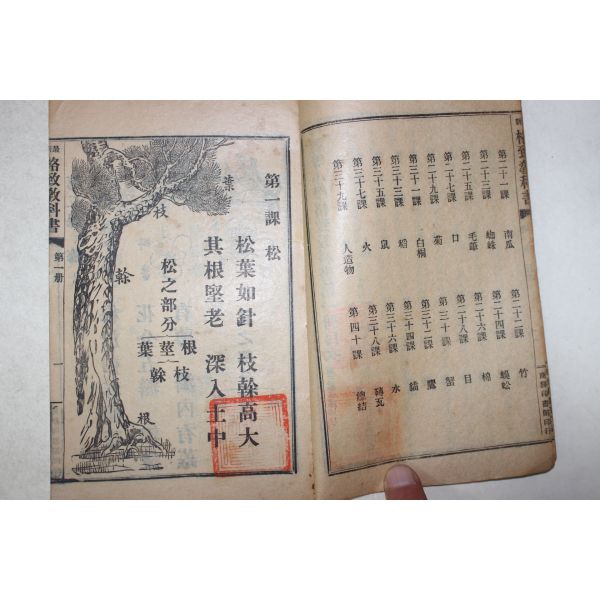 格致教科書
第二十一課 南瓜
第二十二課 竹
第二十三課 蜘蛛
第二十四課 蜈蚣
第二十五課
第二十六課 棉
第二十七課 口
第二十八課 目
第二十九課 菊
第三十課 蟹
第三十一課 白桐
第三十二課 鷹
第三十三課 稻
第三十四課 貓
第三十五課 鼠
第三十六課 水
第三十七課 火
第三十八課 磚瓦
第三十九課 人造物
第四十課 總結
第一課 松
松葉如針 枝榦高大
其根堅老 深入土中
松之部分
根
莖
枝
榦
葉
葉
枝
榦
根
格致教科書
第一册
一